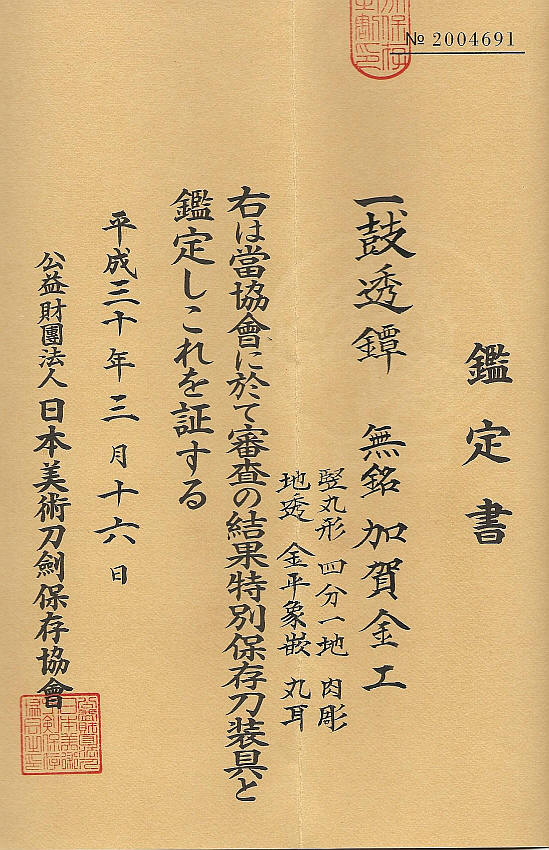 № 2004691
鑑定書
一鼓透鐔 無銘 加賀金工
竪丸形 四分一地 肉彫
地透 金平象嵌 丸耳
右は當協會に於て審査の結果特別保存刀装具と
鑑定しこれを証する
平成三十年三月十六日
公益財團法人日本美術刀劍保存協會